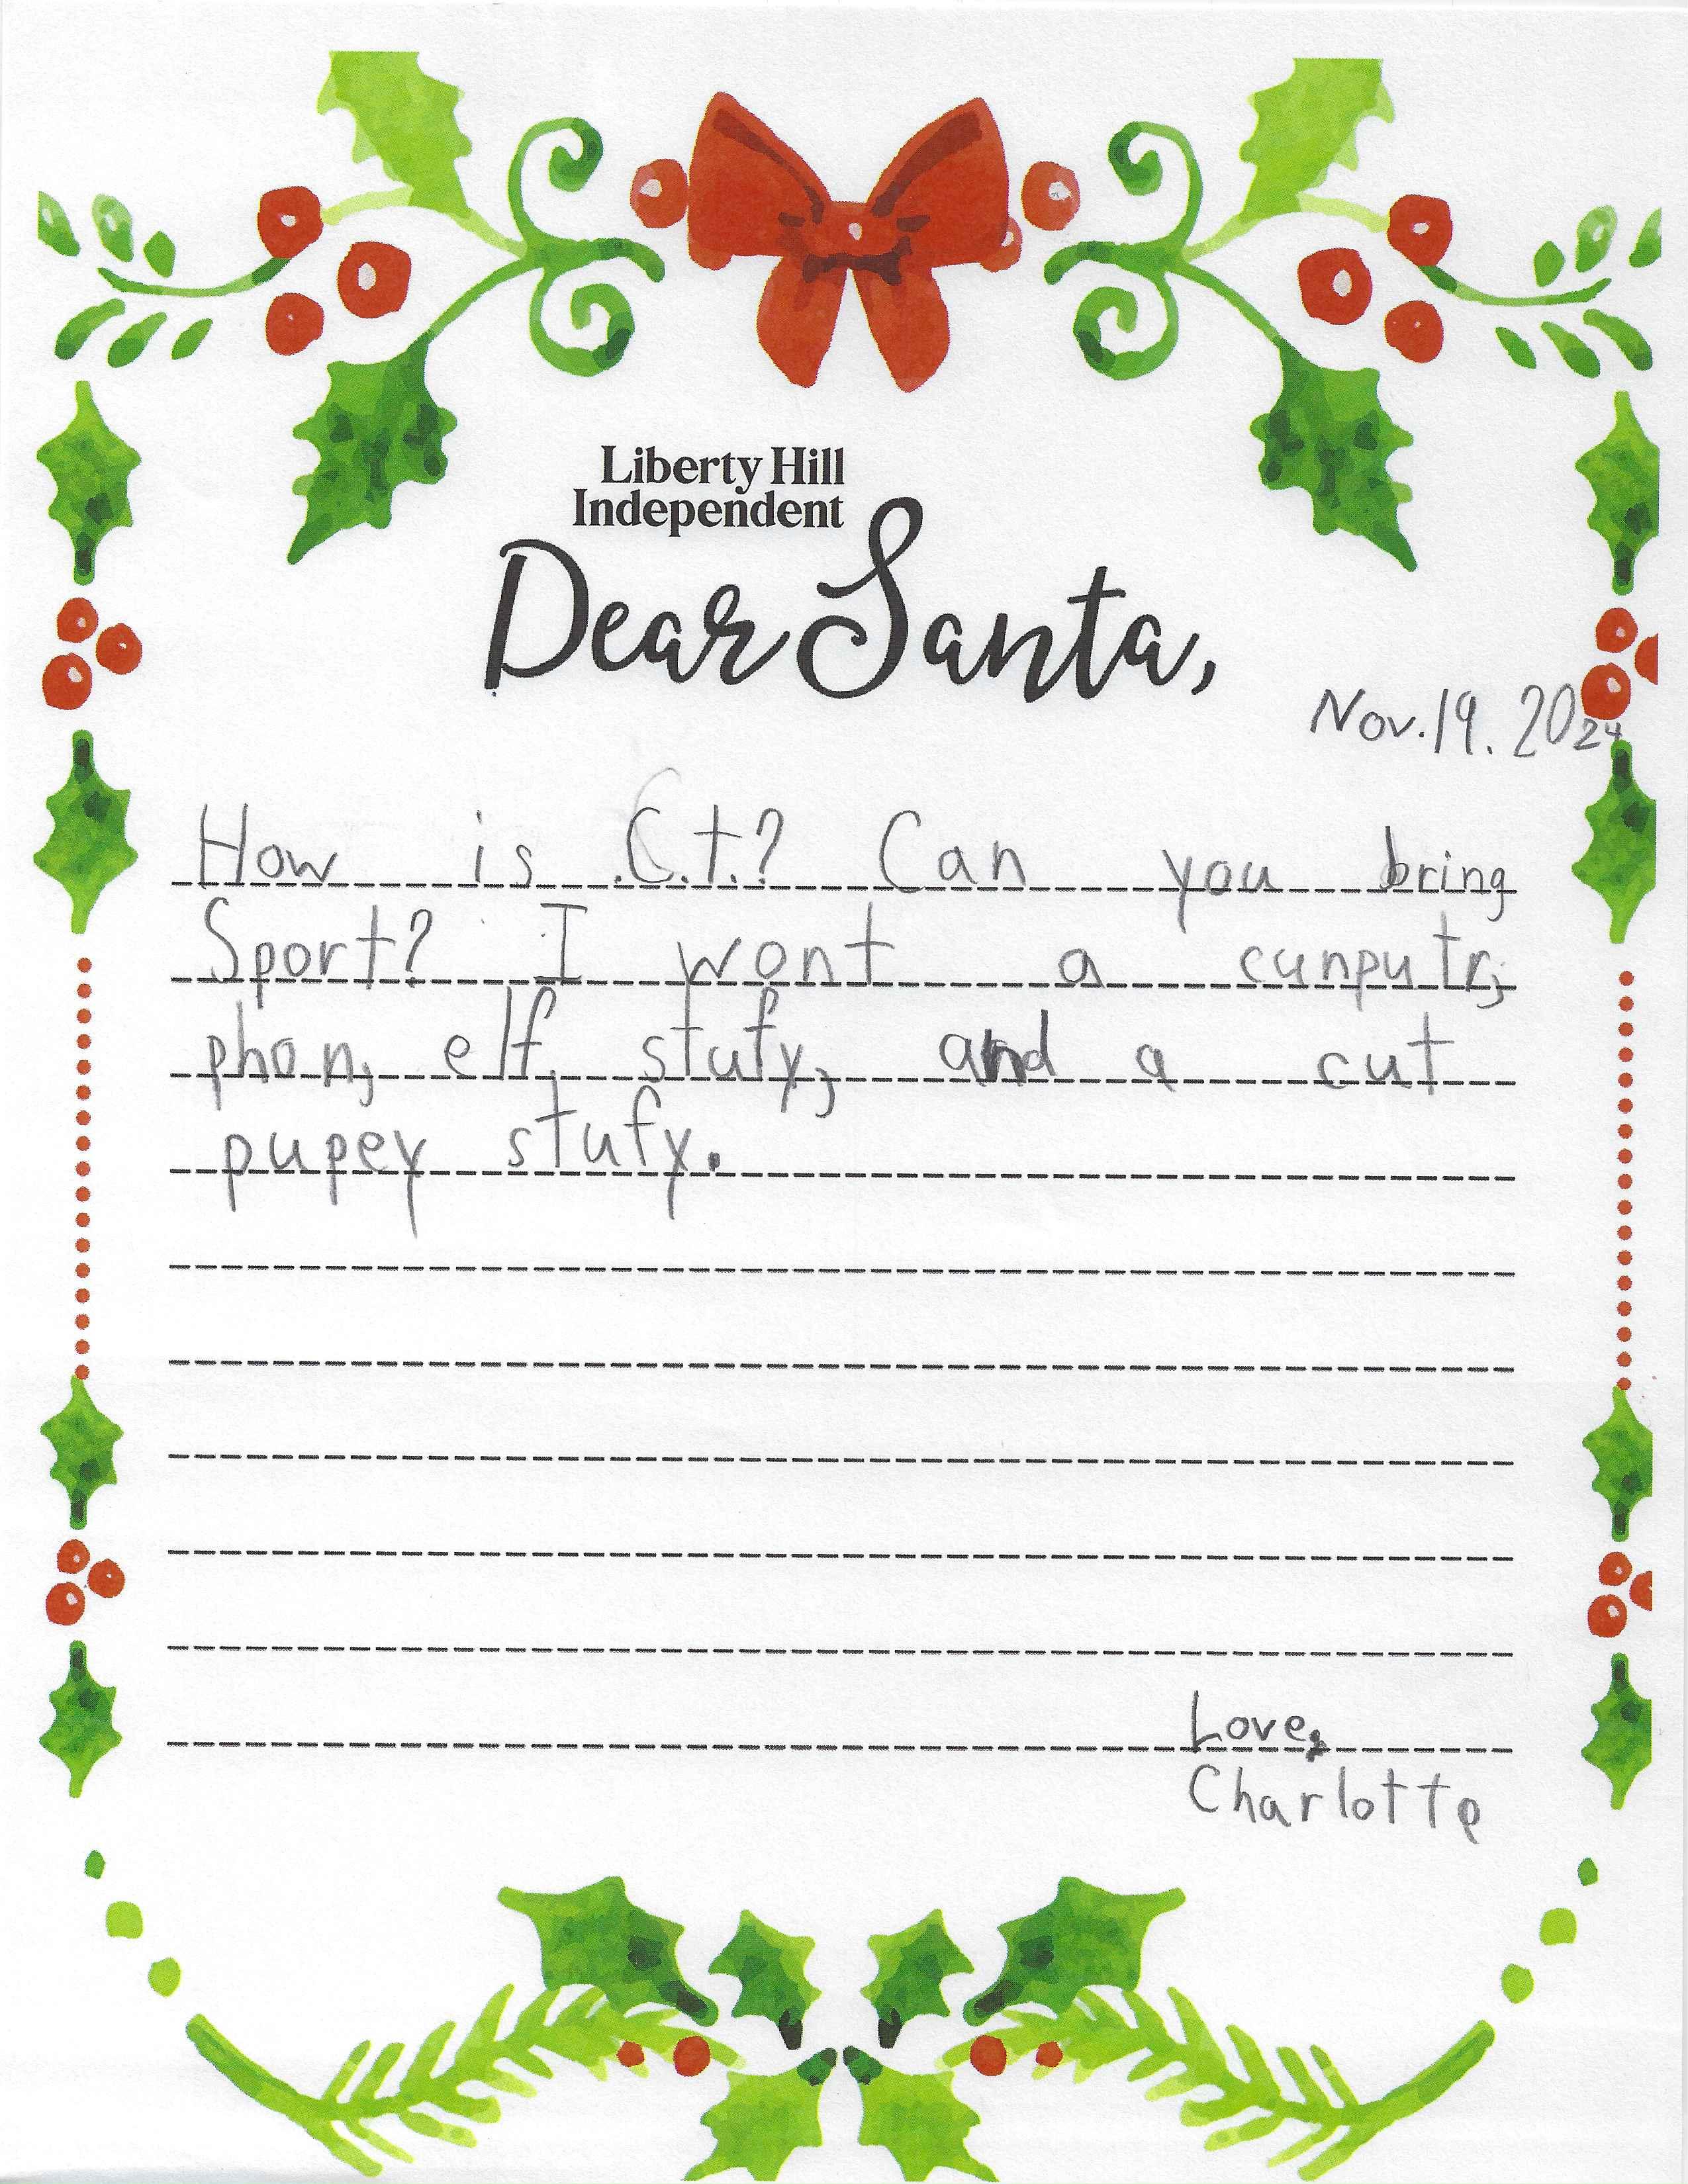 Liberty Hill
Independent
Dear Santa,
Nov.19. 2024
How is C.t.? Can you bring
Sport? I wont a cunputr,
phon, elf stufy, and a cut
pupey stufy.
Love,
Charlotte